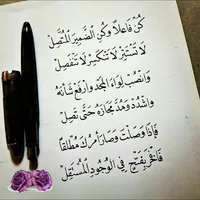 كُنْ فَاعِلاً وَكُنِ الضَّمِيرَ المُتَّصِلْ
لَا تَسْتَتِرْ لَا تَنْكَسِرْ لَا تَنْفَصِلْ
وَانْصُبْ لِوَاءَ المَجْدِ وَارْفَعْ شَأْنَهُ
وَاشْدُدْ وَمُدَّ مَجَازَهُ حَتَّى تَصِلْ
فَإِذَا وَصَلْتَ وَصَارَ أَمْرُكَ مُطْلَقاً
فَاخْرُجْ بِفَتْحٍ فِي الوُجُودِ المُسْتَقِلْ